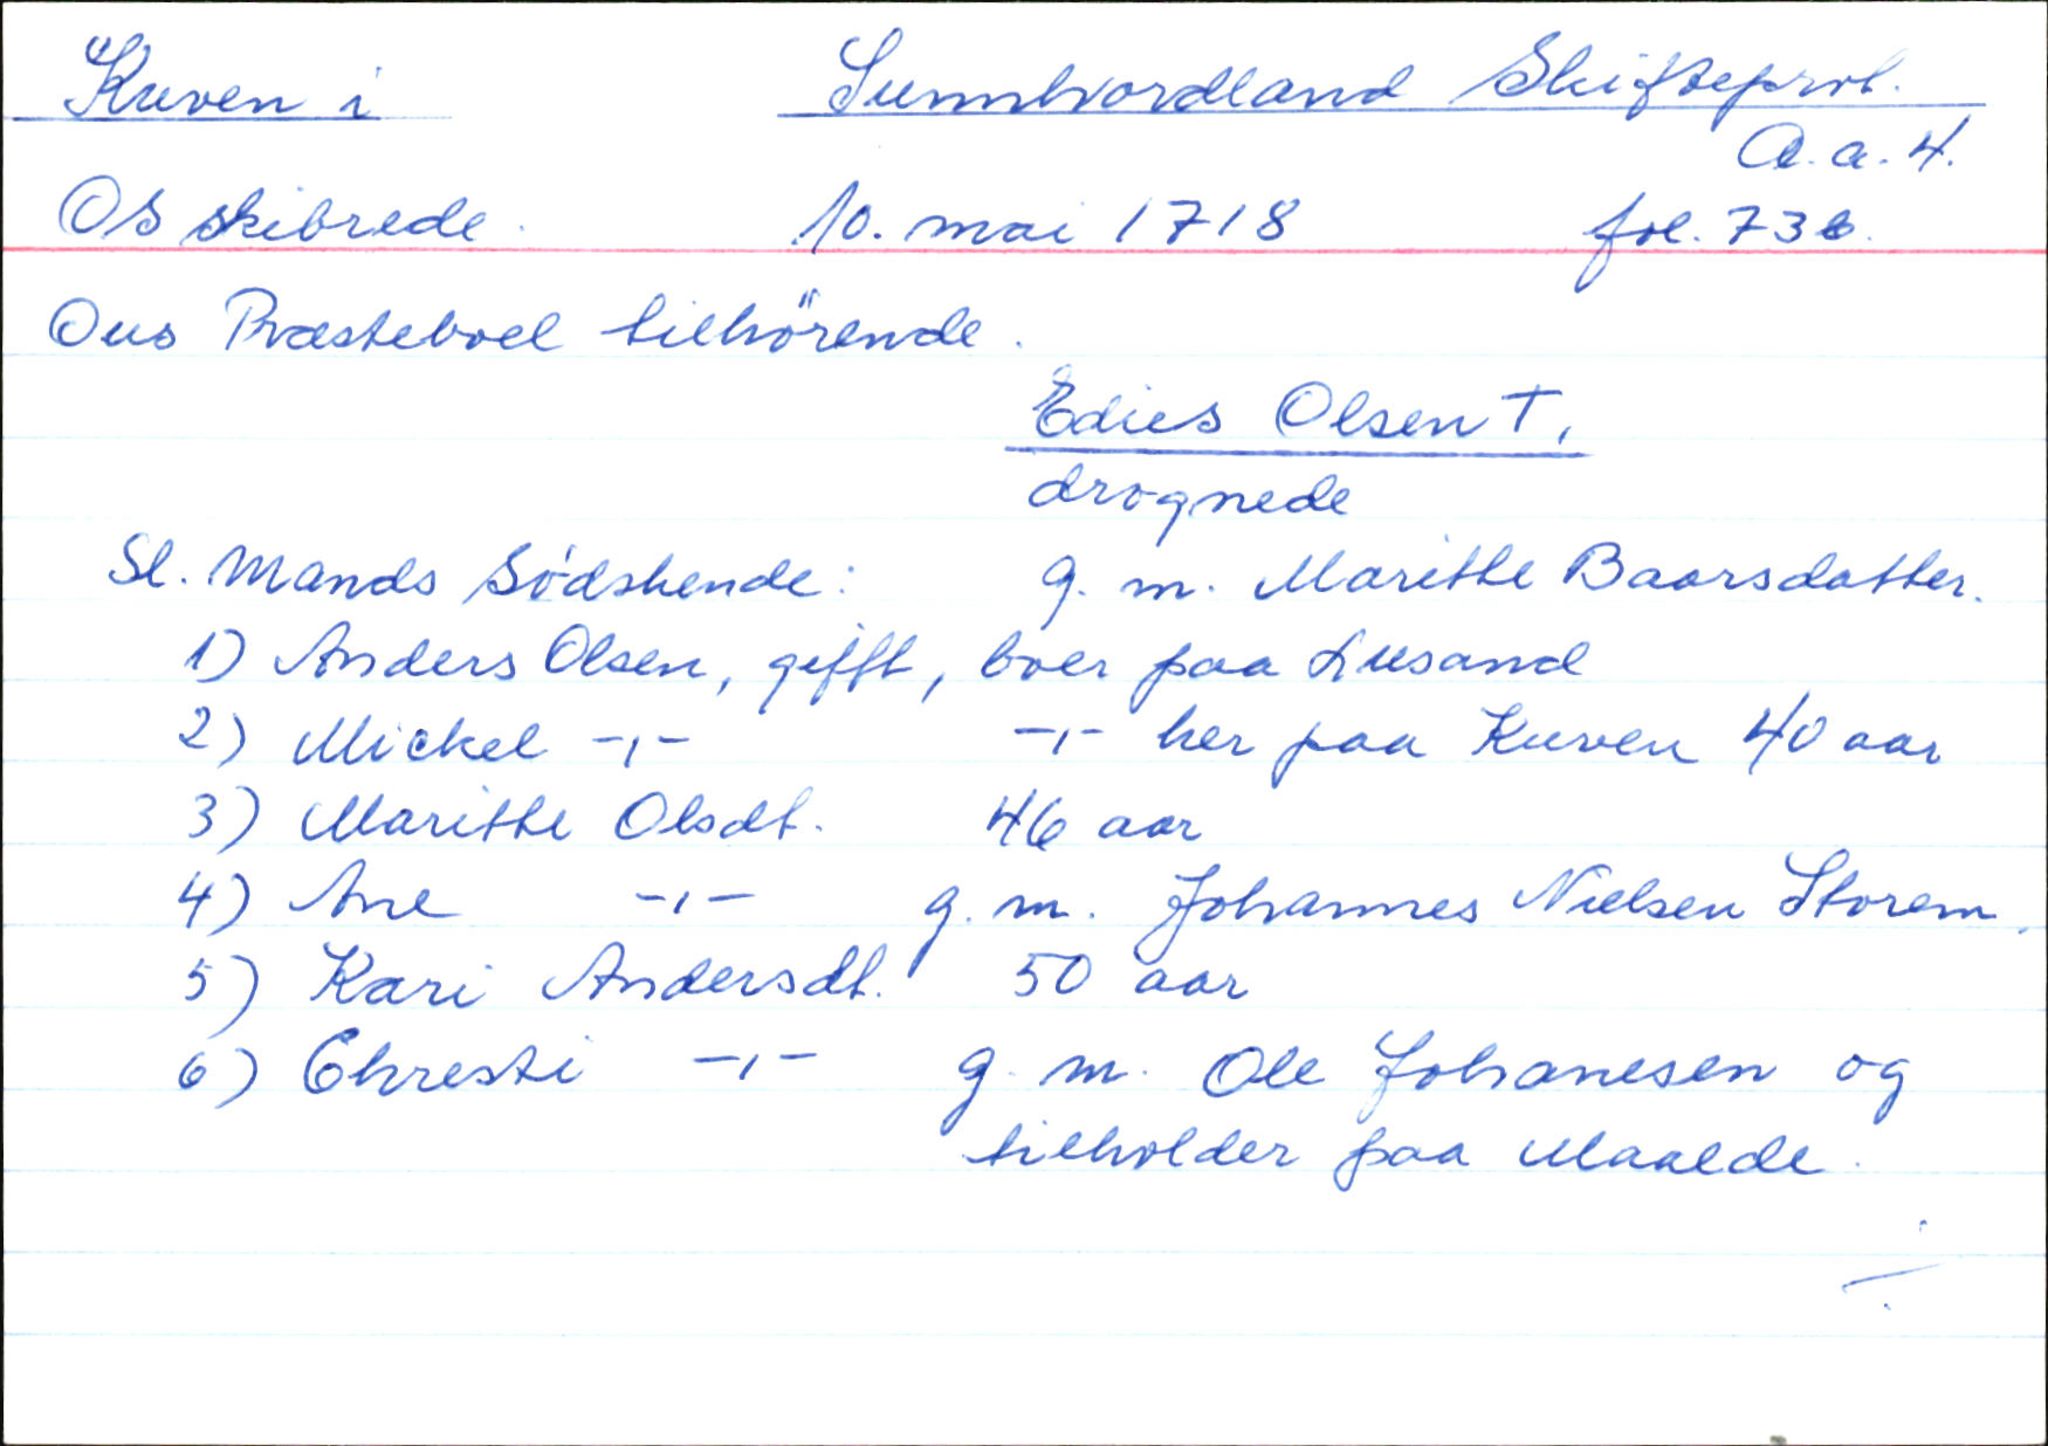 Kuven i Sunnhordland Skifteprot.
A.a.4.
Os skibrede. 10. mai 1718 fol. 73b.
Ous Præsteboel tilhörende.
Edies Olsen †,
drognede
Sl. Mands Sødskende: g. m. Marithe Baarsdatter.
1) Anders Olsen, gifft, boer paa Liusand
2) Mickel -,- -,- her paa Kuven 40 aar
3) Marithe Olsdt. 46 aar
4) Ane -,- g. m. Johannes Nielsen Storem.
5) Kari Andersdt. 50 aar
6) Chresti -,- g. m. Ole Johanesen og
tilholder paa Maalde.